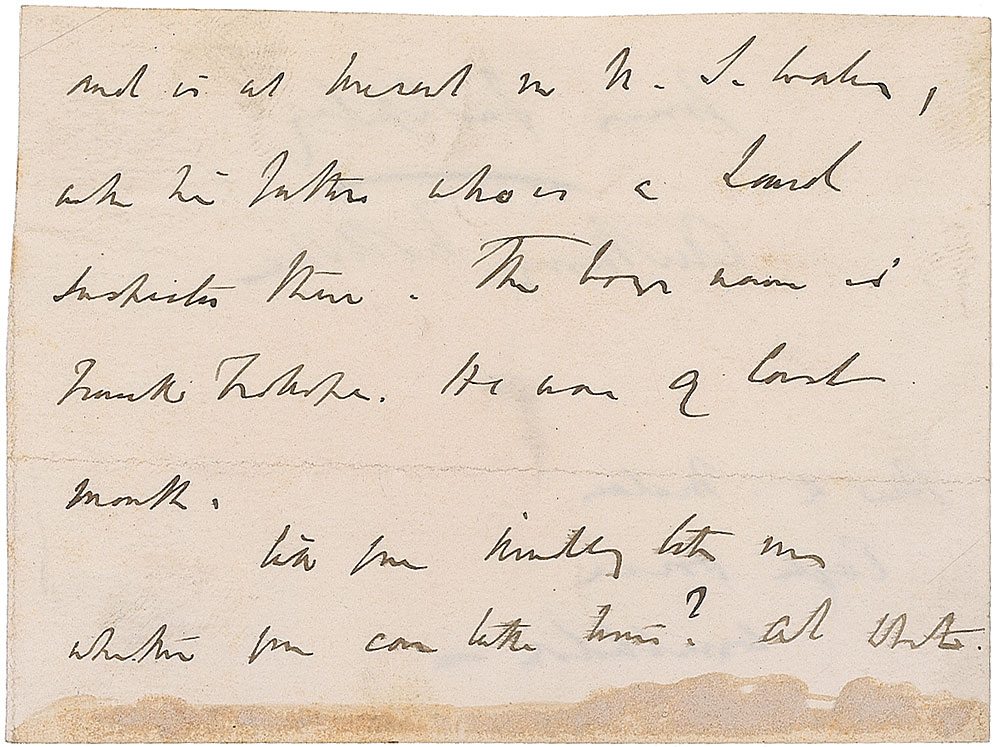 and is at present in N. S. Wales,
with his father who is a Land
Inspector there. The boys name is
Frank Trollope. He was 9 last
month.
Will you kindly let me
whether you can take him? At